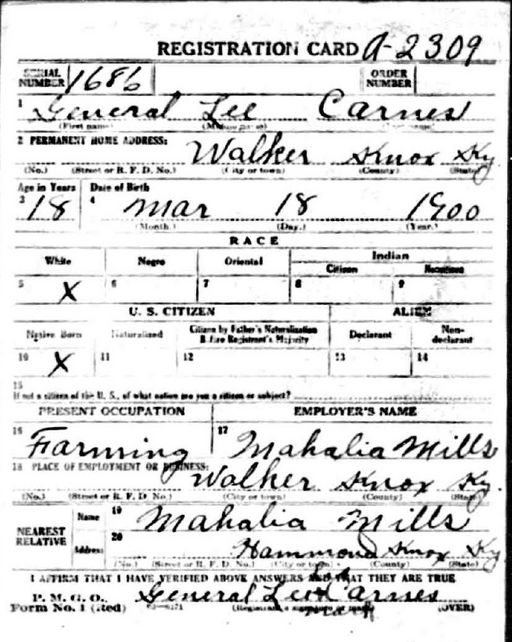 REGISTRATION CARD A-2309
SERIAL NUMBER 1686 ORDER NUMBER
1 General Lee Carnes
(First name) (Middle name)
2 PERMANENT HOME ADDRESS: Walker Knox Ky
(No.) (Street or R. F. D. No.) (City or town) (County) (State)
Age in Years Date of Birth
3 18 4 Mar 18 1900
(Month.) (Day.) (Year.)
RACE
White Negro Oriental Indian
Citizen Noncitizen
5 X 6 7 8 9
U. S. CITIZEN ALIEN
Native Born Naturalized Citizen by Father's Naturalization Before Registrant's Majority Declarant Non-declarant
10 X 11 12 13 14
15
If not a citizen of the U. S., of what nation are you a citizen or subject?
PRESENT OCCUPATION EMPLOYER'S NAME
16 Farming 17 Mahalia Mills
18 PLACE OF EMPLOYMENT OR BUSINESS: Walker Knox Ky.
(No.) (Street or R. F. D. No.) (City or town) (County) (State)
NEAREST RELATIVE Name 19 Mahalia Mills
Address 20 Hammond Knox Ky
(No.) (Street or R. F. D. No.) (City or town) (County) (State)
I AFFIRM THAT I HAVE VERIFIED ABOVE ANSWERS THAT THEY ARE TRUE
P. M. G. O. General Lee Carnes
Form No. 1 (Red) (Registrant's signature or mark) (OVER)
mark